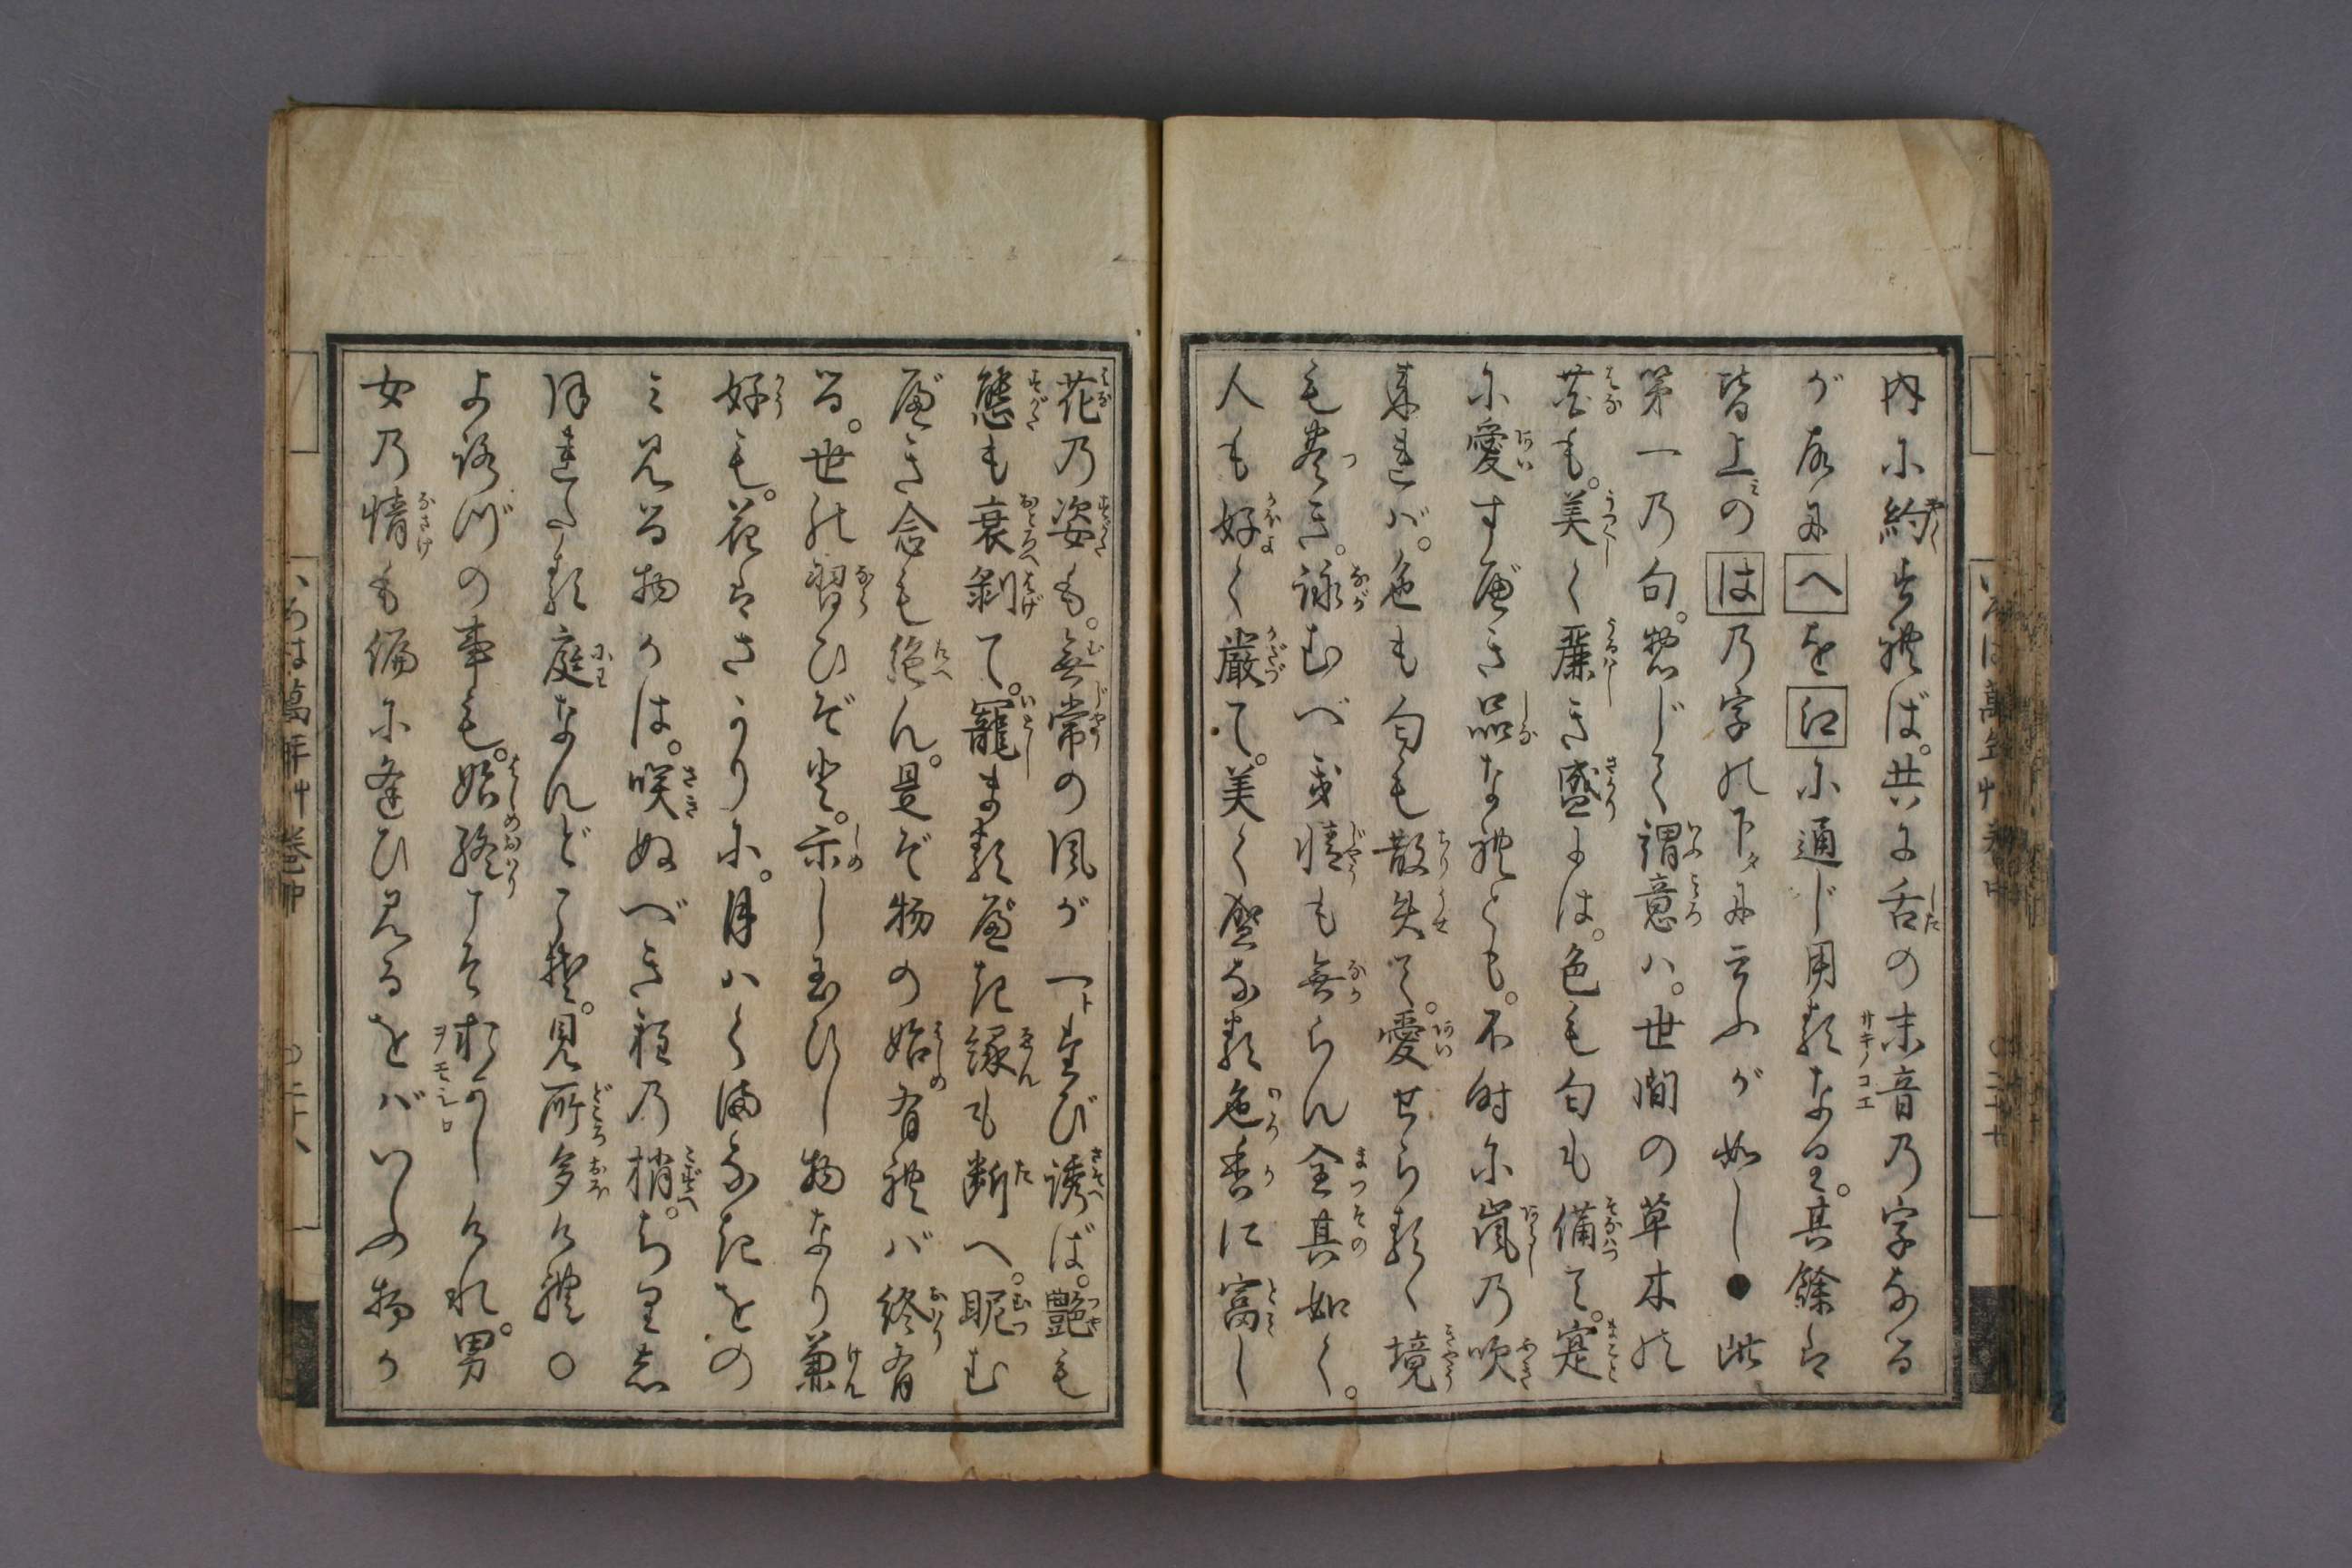 内に約すれば。共に舌の末音乃字なる
が故にへを江に通じ用るなり。其餘は
皆上のは乃字の下に云ふが如し●此
第一乃句。惣じて謂意ハ。世間の草木の
花も。美く麗き盛には。色も匂も備て。寔
に愛すべき品なれども。不時に嵐乃吹
来れバ。色も匂も散失て。愛せらるゝ境
も尽き。詠むべき情も無らん全其如く。
人も好く嚴て。美く盛なる色香に富し
花乃姿も。無常の風が一トたび誘ば。艶も
態も衰剥て。寵まるべき縁も断へ。眤む
べき念も絶ん。是ぞ物の始有れバ終有
る。世の習ひぞと。示し玉ひし物なり兼
好も。花はさかりに。月ハくまなきをの
ミ見る物かは。咲ぬべき程乃梢。ちりし
ほれたる庭なんどこそ。見所多けれ○
よろづの事も。始終こそおかしけれ。男
女乃情も偏に逢ひ見るをバいふ物か
いろは萬年艸巻中